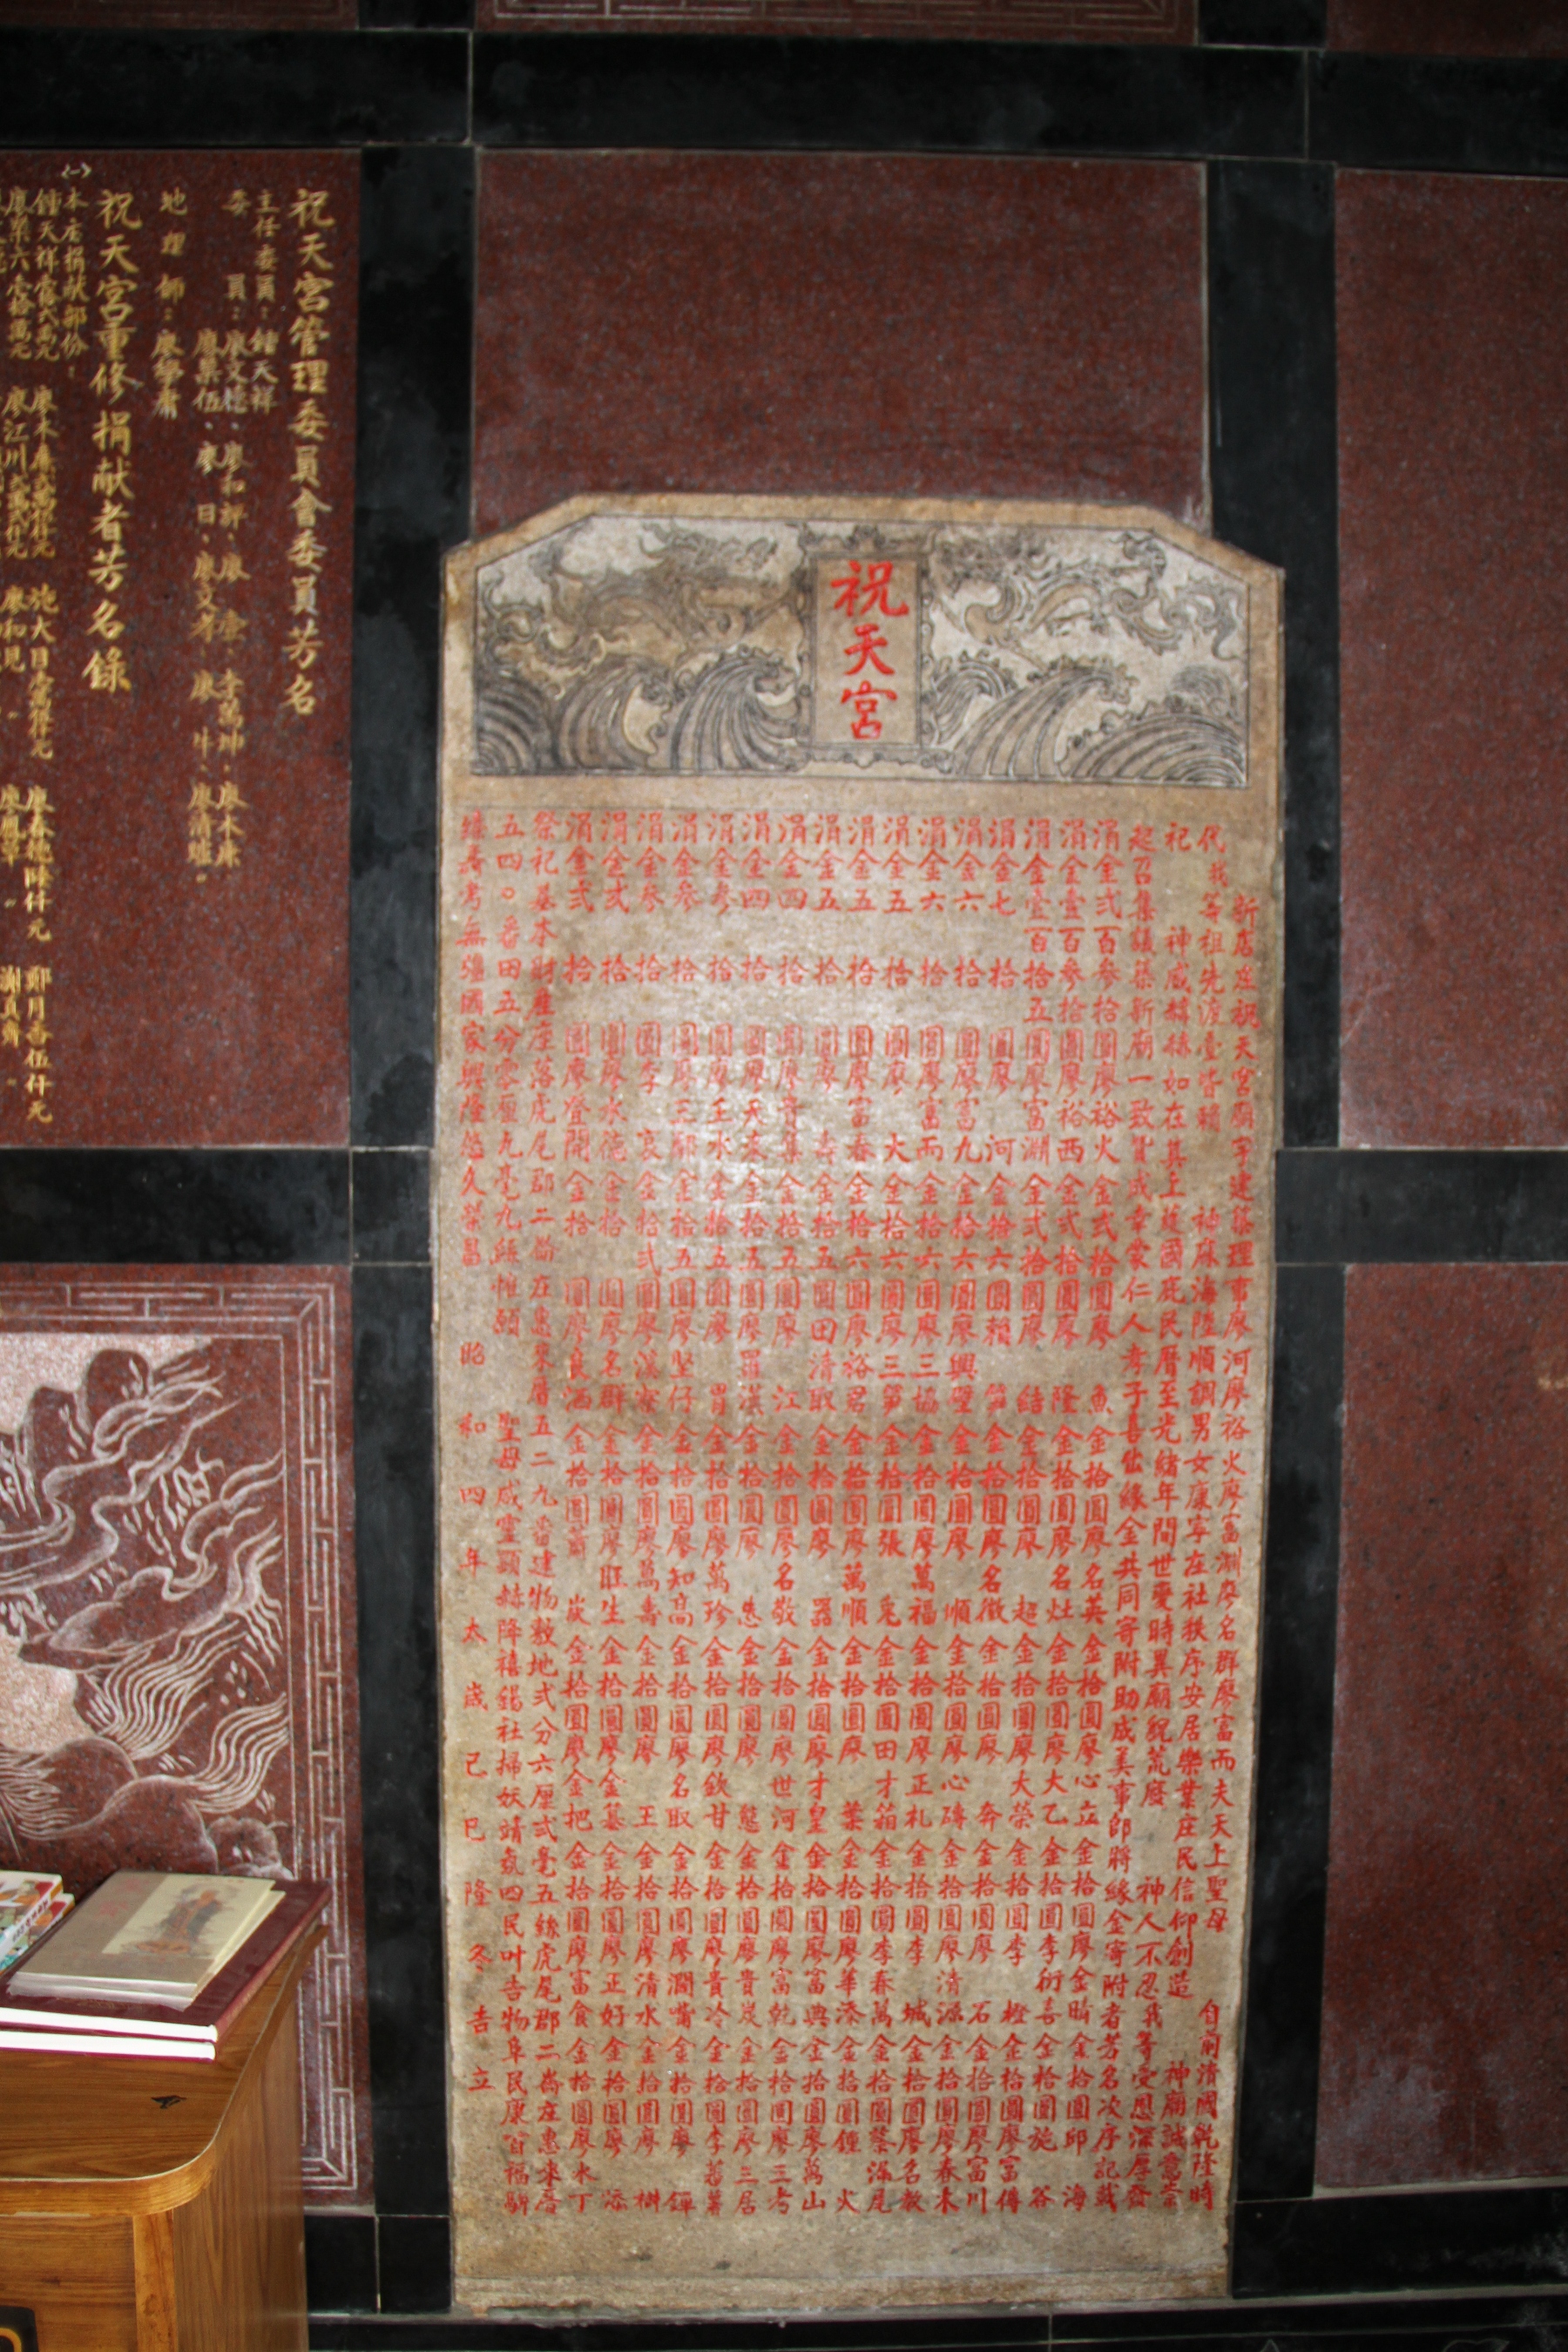 祝天宮
新店庄祝天宮廟宇建築理事廖河廖裕火廖富淵廖名群廖富而夫天上聖母 自前清國乾隆時
代我等祖先渡臺皆賴 祐庥海陸順調男女康寧在社秩序安居樂業庄民信仰創造 神廟誠意崇
祀 神威赫赫如在其上護國庇民曆至光緒年間世變時異廟貌荒廢 神人不忍我等受恩深厚發
起召集議築新廟一致贊成幸蒙仁人孝子喜出緣金共同寄附助成美事卽將緣金寄附者芳名次序記載
涓金弍百參拾圓廖裕火金弍拾圓廖魚金拾圓廖名英金拾圓廖心立金拾圓廖金晴金拾圓邱海
涓金壹百參拾圓廖裕西金弍拾圓廖隆金拾圓廖名灶金拾圓廖大乙金拾圓李衍喜金拾圓施谷
涓金壹百拾五圓廖富淵金弍拾圓廖結金拾圓廖超金拾圓廖大榮金拾圓李橙金拾圓廖富傳
涓金七拾圓廖河金拾六圓賴金拾圓廖名徵金拾圓廖奔金拾圓廖石金拾圓廖富川
涓金六拾圓廖富九金拾六圓廖興壁金拾圓廖順金拾圓廖心磚金拾圓廖清源金拾圓廖春木
涓金六拾圓廖富而金拾六圓廖三協金拾圓廖萬福金拾圓廖正札金拾圓李城金拾圓廖名教
涓金五拾圓廖大金拾六圓廖三第金拾圓張兎金拾圓田才箱金拾圓李春萬金拾圓蔡深尾
涓金五拾圓廖富春金拾六圓廖裕君金拾圓廖萬順金拾圓廖葉金拾圓廖華添金拾圓鍾火
涓金五拾圓廖壽金拾五圓田清取金拾圓廖器金拾圓廖才皇金拾圓廖富興金拾圓廖萬山
涓金四拾圓廖金拾五圓廖江金拾圓廖名敬金拾圓廖世河金拾圓廖富乾金拾圓廖三考
涓金四拾圓廖天來金拾五圓廖羅漢金拾圓廖金拾圓廖態金拾圓廖貴炭金拾圓廖三居
涓金參拾圓廖壬水金拾五圓廖胃金拾圓廖萬珍金拾圓廖欽甘金拾圓廖貴冷金拾圓李蕃薯
涓金參拾圓廖三郎金拾五圓廖堅仔金拾圓廖知高金拾圓廖名取金拾圓廖潤嘴金拾圓廖鐸
涓金參拾圓李哀金拾弍圓廖溪寮金拾圓廖萬壽金拾圓廖王金拾圓廖清水金拾圓廖樹
涓金弍拾圓廖水德金拾圓廖名群金拾圓廖旺生金拾圓廖金墓金拾圓廖正好金拾圓廖添
涓金弍拾圓廖登開金拾圓廖良酒金拾圓蕭炭金拾圓廖金把金拾圓廖富食金拾圓廖水丁
祭祀基本財產座落虎尾郡二崙庄惠來厝五二九番建物敷地弍分六厘弍毫五絲虎尾郡二崙庄惠來厝
五四〇番田五分零厘九毫九絲惟願 聖母威靈顯赫降禧錫社掃妖靖氛四民叶吉物阜民康福駢
臻壽考無疆國家興隆悠久榮昌 昭和四年太歲己巳隆冬吉立
祝天宮管理委員會委員芳名
主任委員：鍾天祥
委員：廖文德、廖和評、廖、李萬坤、廖木康
廖業伍、廖日、廖文孝、廖牛、廖清墟。
地理師：廖學庸
祝天宮重修捐献者芳名錄
㈠本店捐献部份：
鍾天祥 廖木康 施大目 廖春 陸仟元 鄭月香伍仟元
廖業六 廖江川 廖和見〃 謝真齊〃